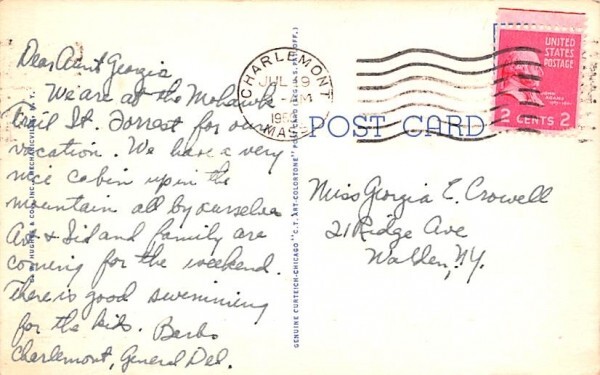 Dear Aunt Georgia
We are at the Mohawk
Trail St. Forrest for our
vacation. We have a very
nice cabin up in the
mountain all by ourselves
Av & Sid and family are
coming for the weekend.
There is good swimming
for the kids. Barbs
Charlemont, General Del.
GENUINE CURTEICH-CHICAGO "C.T. ART-COLORTONE" POST CARD (REG. U.S. PAT. OFF.)
CHARLEMONT
JUL 9
MASS
POST CARD
UNITED
STATES
POSTAGE
JOHN
ADAMS
2 CENTS 2
Miss Georgia E. Crowell
21 Ridge Ave
Walden, N.Y.